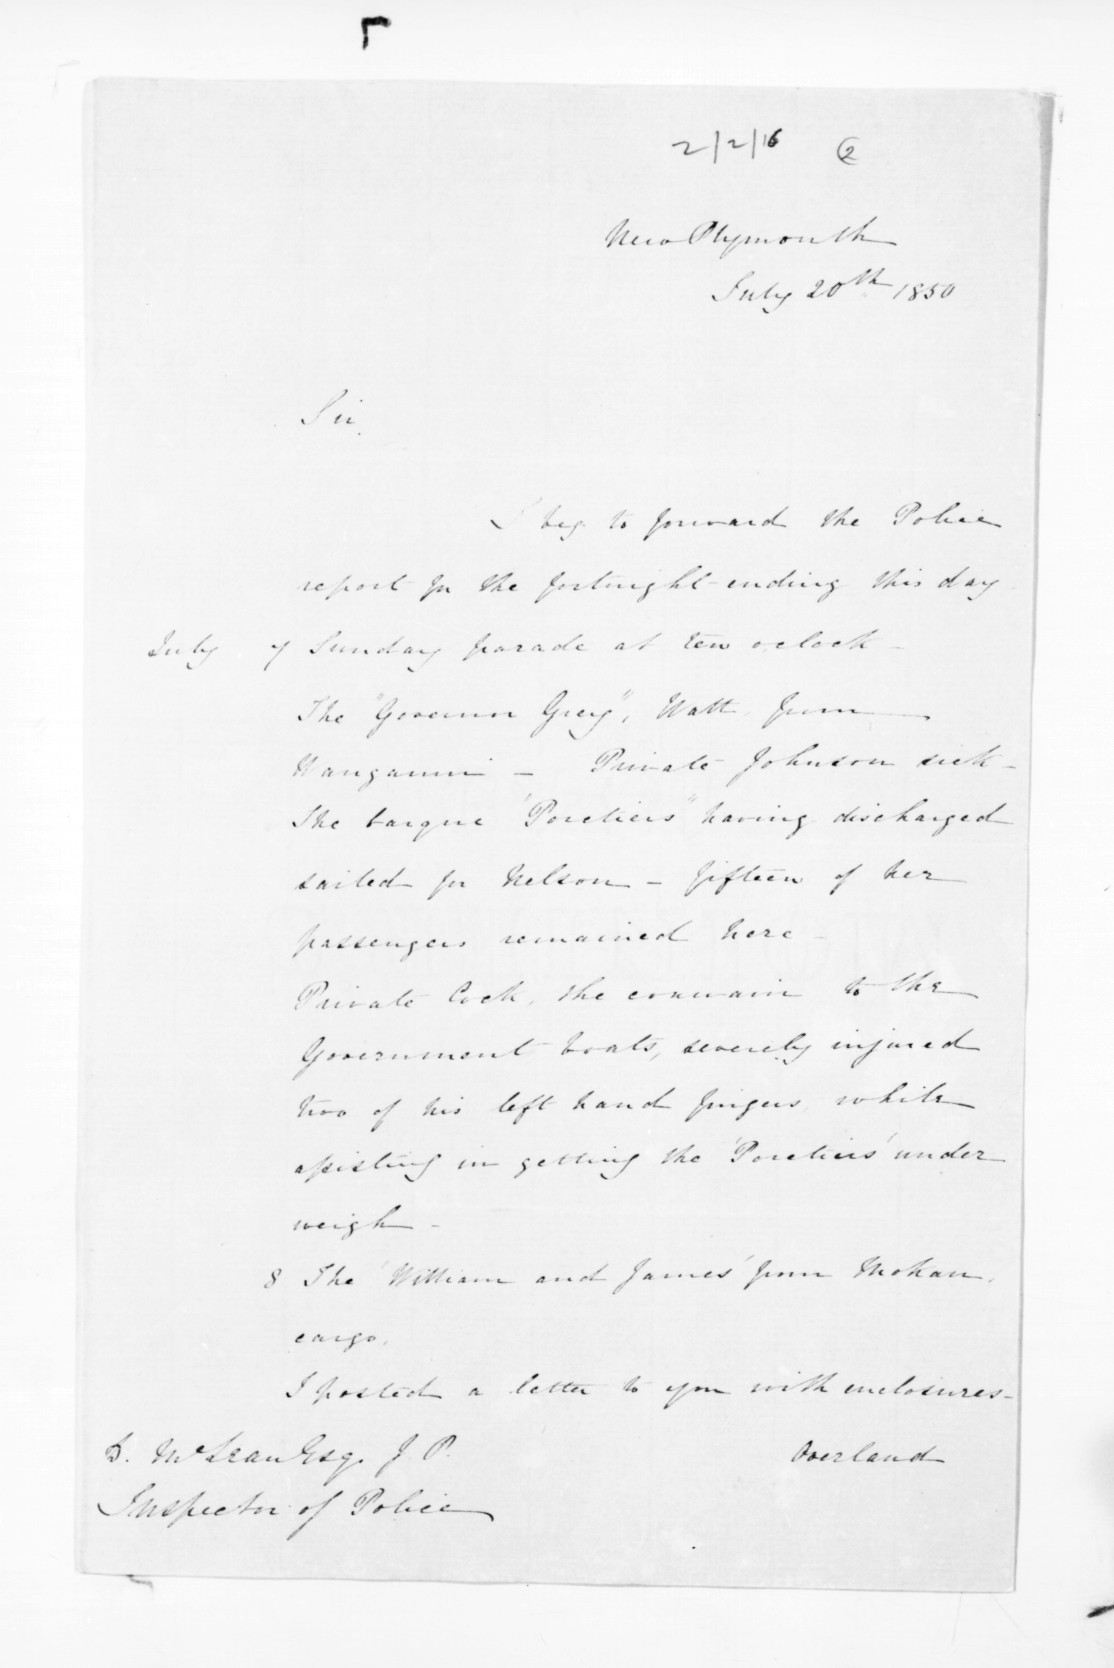 2/2/16 2
New Plymouth
July 20th 1850
Sir,
I beg to forward the Police
report for the fortnight ending this day
July 7 Sunday parade at ten o'clock -
The "Governor Grey", Watt from
Wanganui - Private Johnson sick -
The barque "Poictiers" having discharged
sailed for Nelson - fifteen of her
passengers remained here -
Private Cock, the coxwain to the
Government boats, severely injured
two of his left hand fingers while
assisting in getting the 'Poictiers' under
weigh -
8 The 'William and James' from Mokau,
cargo.
I posted a letter to you with enclosures -
D. McLean Esq. J.P. Overland
Inspector of Police